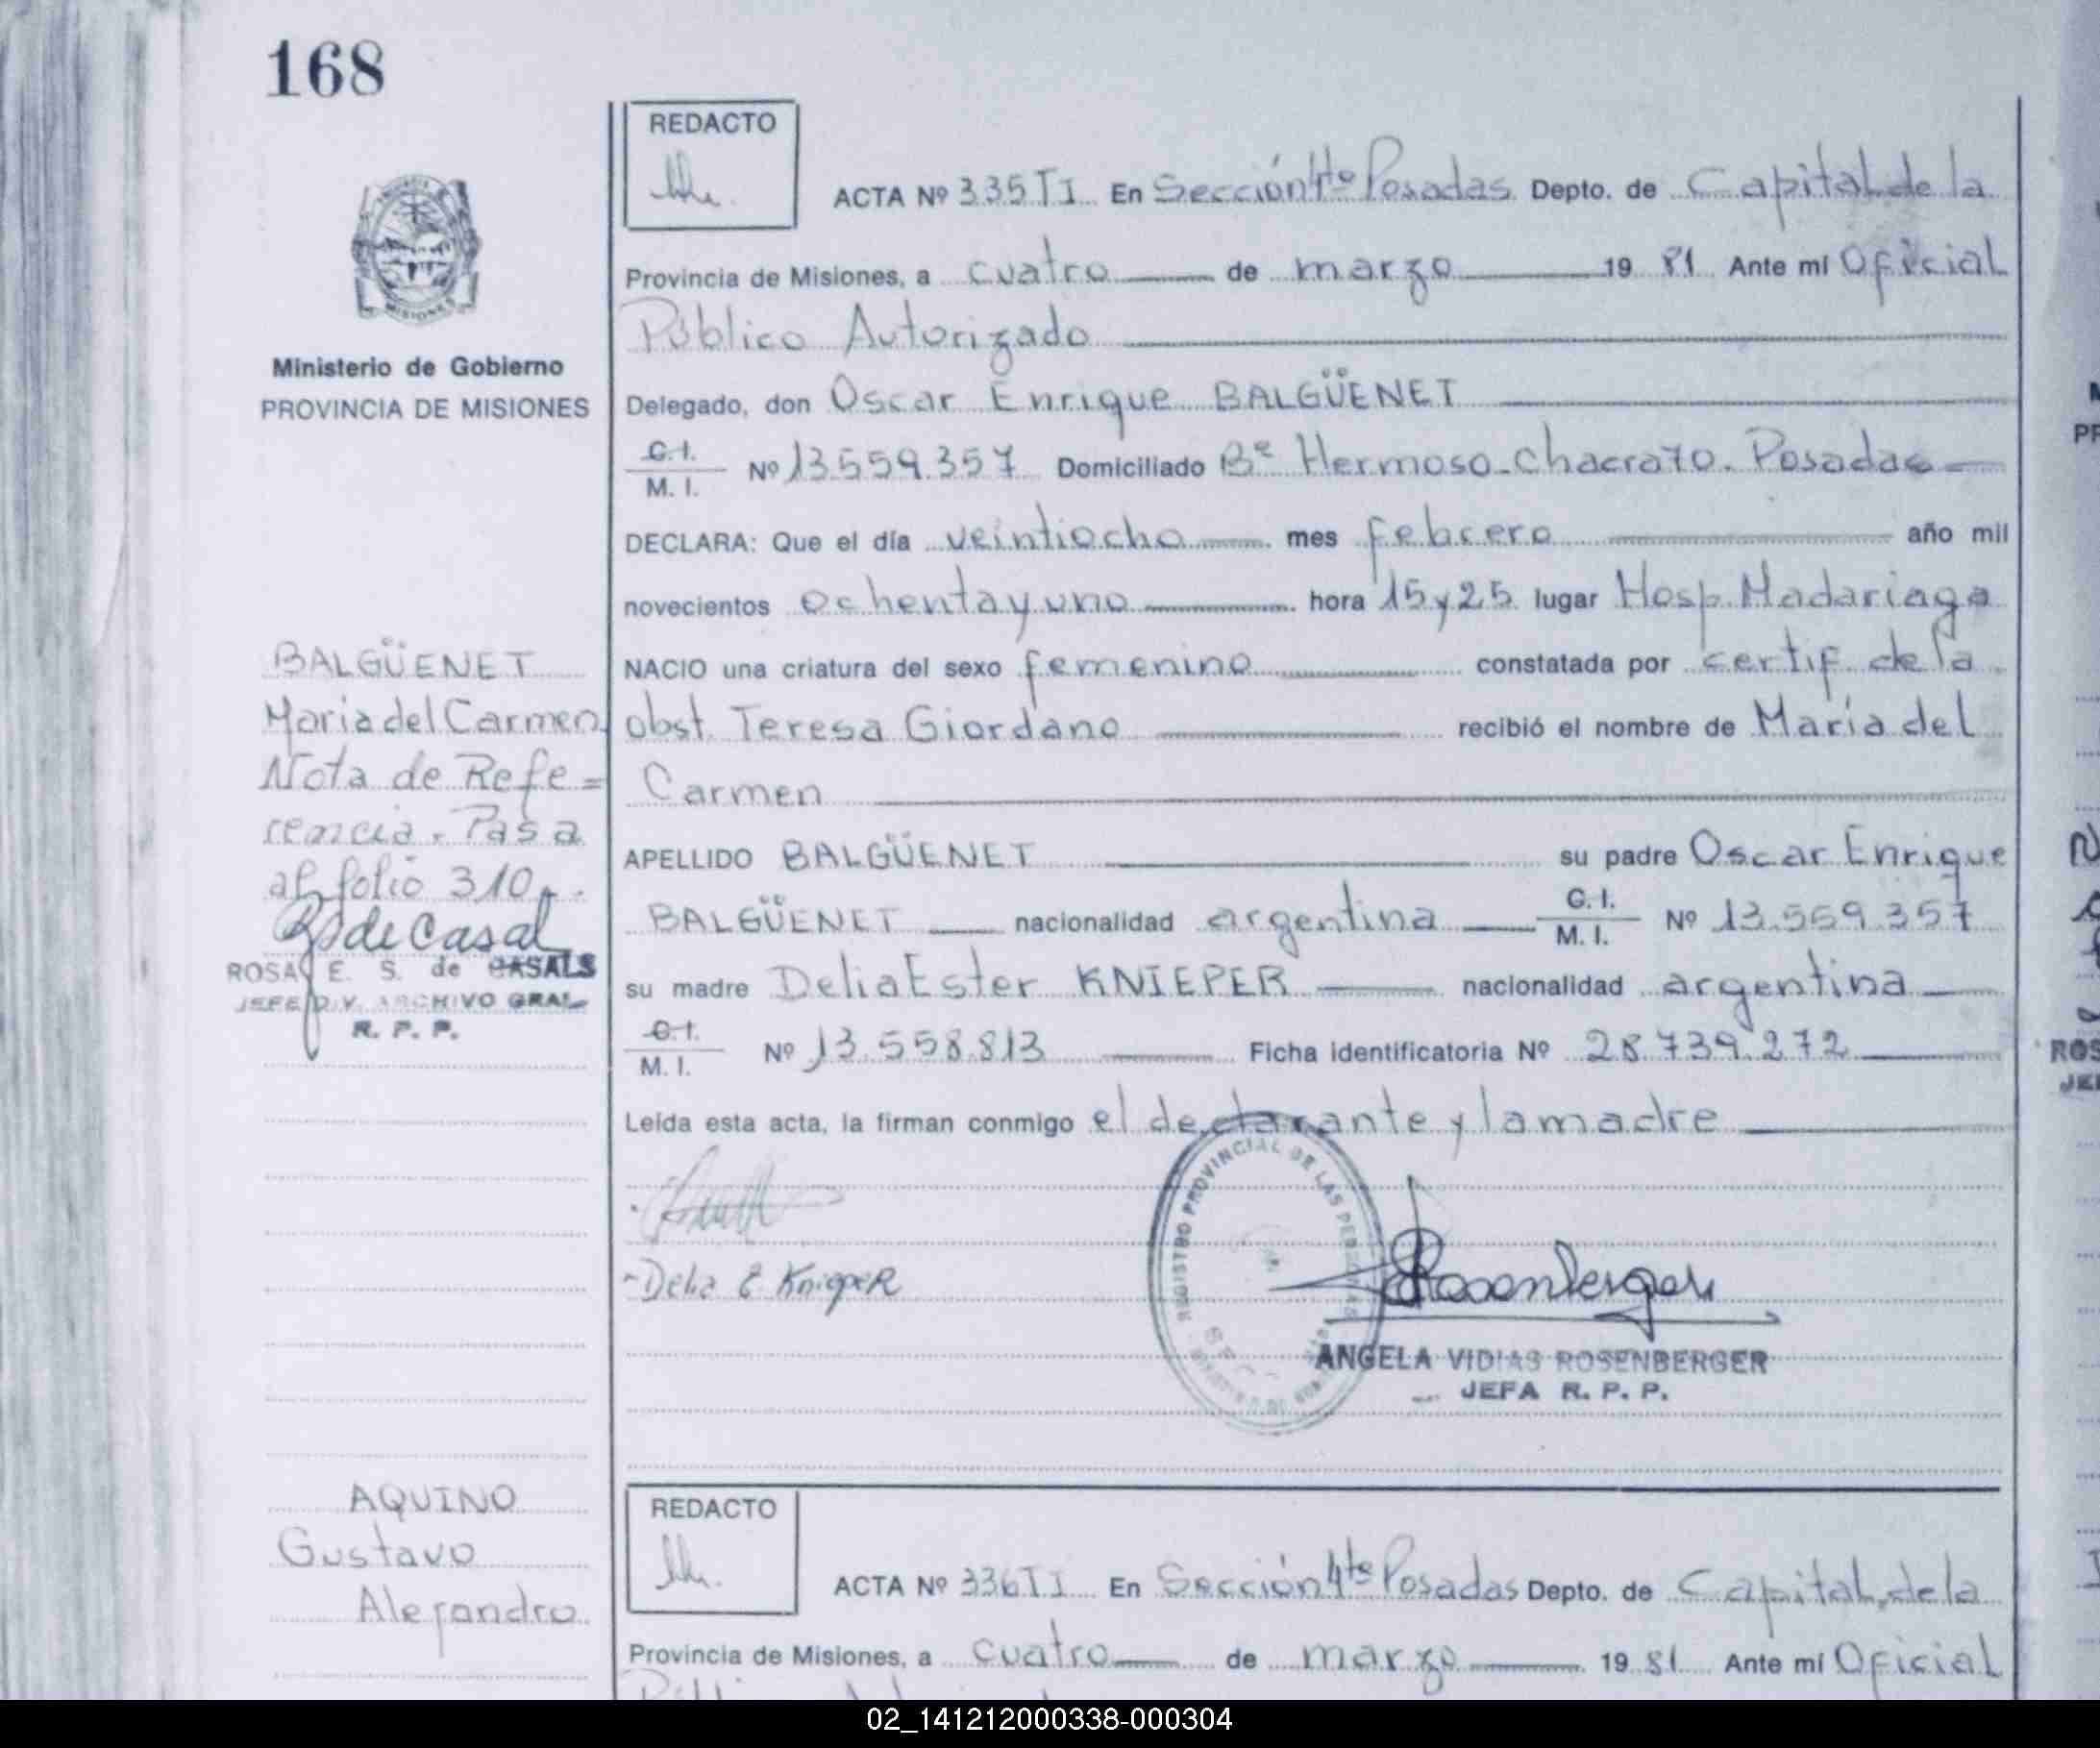 168
REDACTO
ACTA Nº 335 TI En Sección 4ta Posadas Depto. de Capital, de la
Provincia de Misiones, a cuatro de marzo 19 81 Ante mí Oficial
Público Autorizado
Delegado, don Oscar Enrique BALGÜENET
C.I. M. I. Nº 13.559.357 Domiciliado Bº Hermoso - Chacra 70. Posadas
DECLARA: Que el día veintiocho mes febrero año mil
novecientos ochenta y uno hora 15 y 25 lugar Hosp. Madariaga
NACIO una criatura del sexo femenino constatada por certif. de la
obst. Teresa Giordano recibió el nombre de María del
Carmen
APELLIDO BALGÜENET su padre Oscar Enrique
BALGÜENET nacionalidad argentina C.I. M. I. Nº 13.559.357
su madre Delia Ester KNIEPER nacionalidad argentina
C.I. M. I. Nº 13.558.813 Ficha identificatoria Nº 28.739.272
Leída esta acta, la firman conmigo el declarante y la madre
Delia E KniepeR
REGISTRO PROVINCIAL DE LAS PERSONAS
Rosenberger
ANGELA VIDIAS ROSENBERGER
JEFA R. P. P.
MISIONES
Ministerio de Gobierno
PROVINCIA DE MISIONES
BALGÜENET
María del Carmen
Nota de Refe=
rencia. Pasa
al folio 310.
R de Casal
ROSA E. S. de CASALS
JEFE DIV. ARCHIVO GRAL
R. P. P.
AQUINO
Gustavo
Alejandro
REDACTO
ACTA Nº 336 TI En Sección 4ta Posadas Depto. de Capital, de la
Provincia de Misiones, a cuatro de marzo 19 81 Ante mí Oficial
02_141212000338-000304